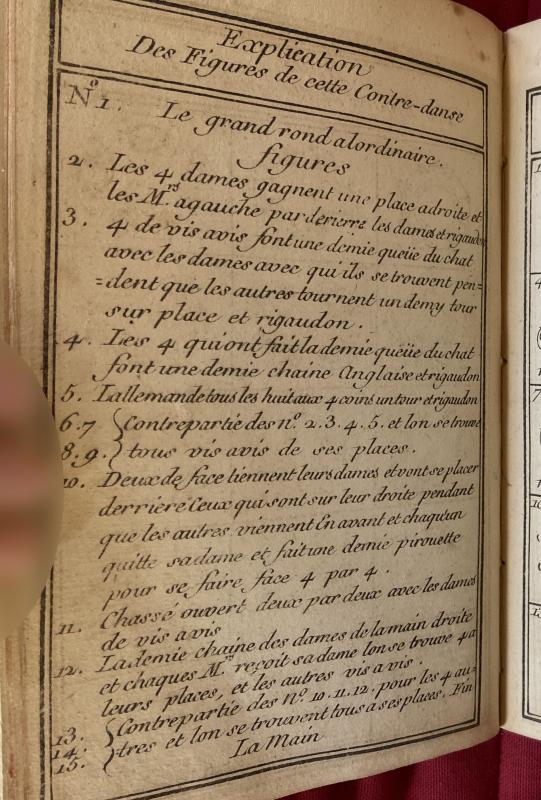 Explication
Des Figures de cette Contre-danse
N.o 1. Le grand rond alordinaire.
figures
2. Les 4 dames gagnent une place adroite et
les M.rs agauche par derierre les dames et rigaudon
3. 4 de vis avis font une demie queüe du chat
avec les dames avec qui ils se trouvent pen=
=dent que les autres tournent un demy tour
sur place et rigaudon.
4. Les 4 qui ont fait la demie queüie du chat
font une demie chaine Anglaise et rigaudon
5. Lallemande tous les huit aux 4 coins un tour et rigaudon
6.7 { Contrepartie des n.o 2. 3. 4. 5. et lon se trouve
8.9. } tous vis avis de ses places.
10. Deux de face tiennent leurs dames et vont se placer
derriere Ceux qui sont sur leur droite pendant
que les autres viennent En avant et chaqu'un
quitte sa dame et fait une demie pirouette
pour se faire face 4 par 4.
11. Chassé ouvert deux par deux avec les dames
de vis a vis
12. La demie chaine des dames de la main droite
et chaques M.r reçoit sa dame lon se trouve 4 a
leurs places, et les autres vis a vis.
13. { Contrepartie des N.o 10. 11. 12. pour les 4 au=
14. tres et lon se trouvent tous a ses places. Fin
15.
La Main